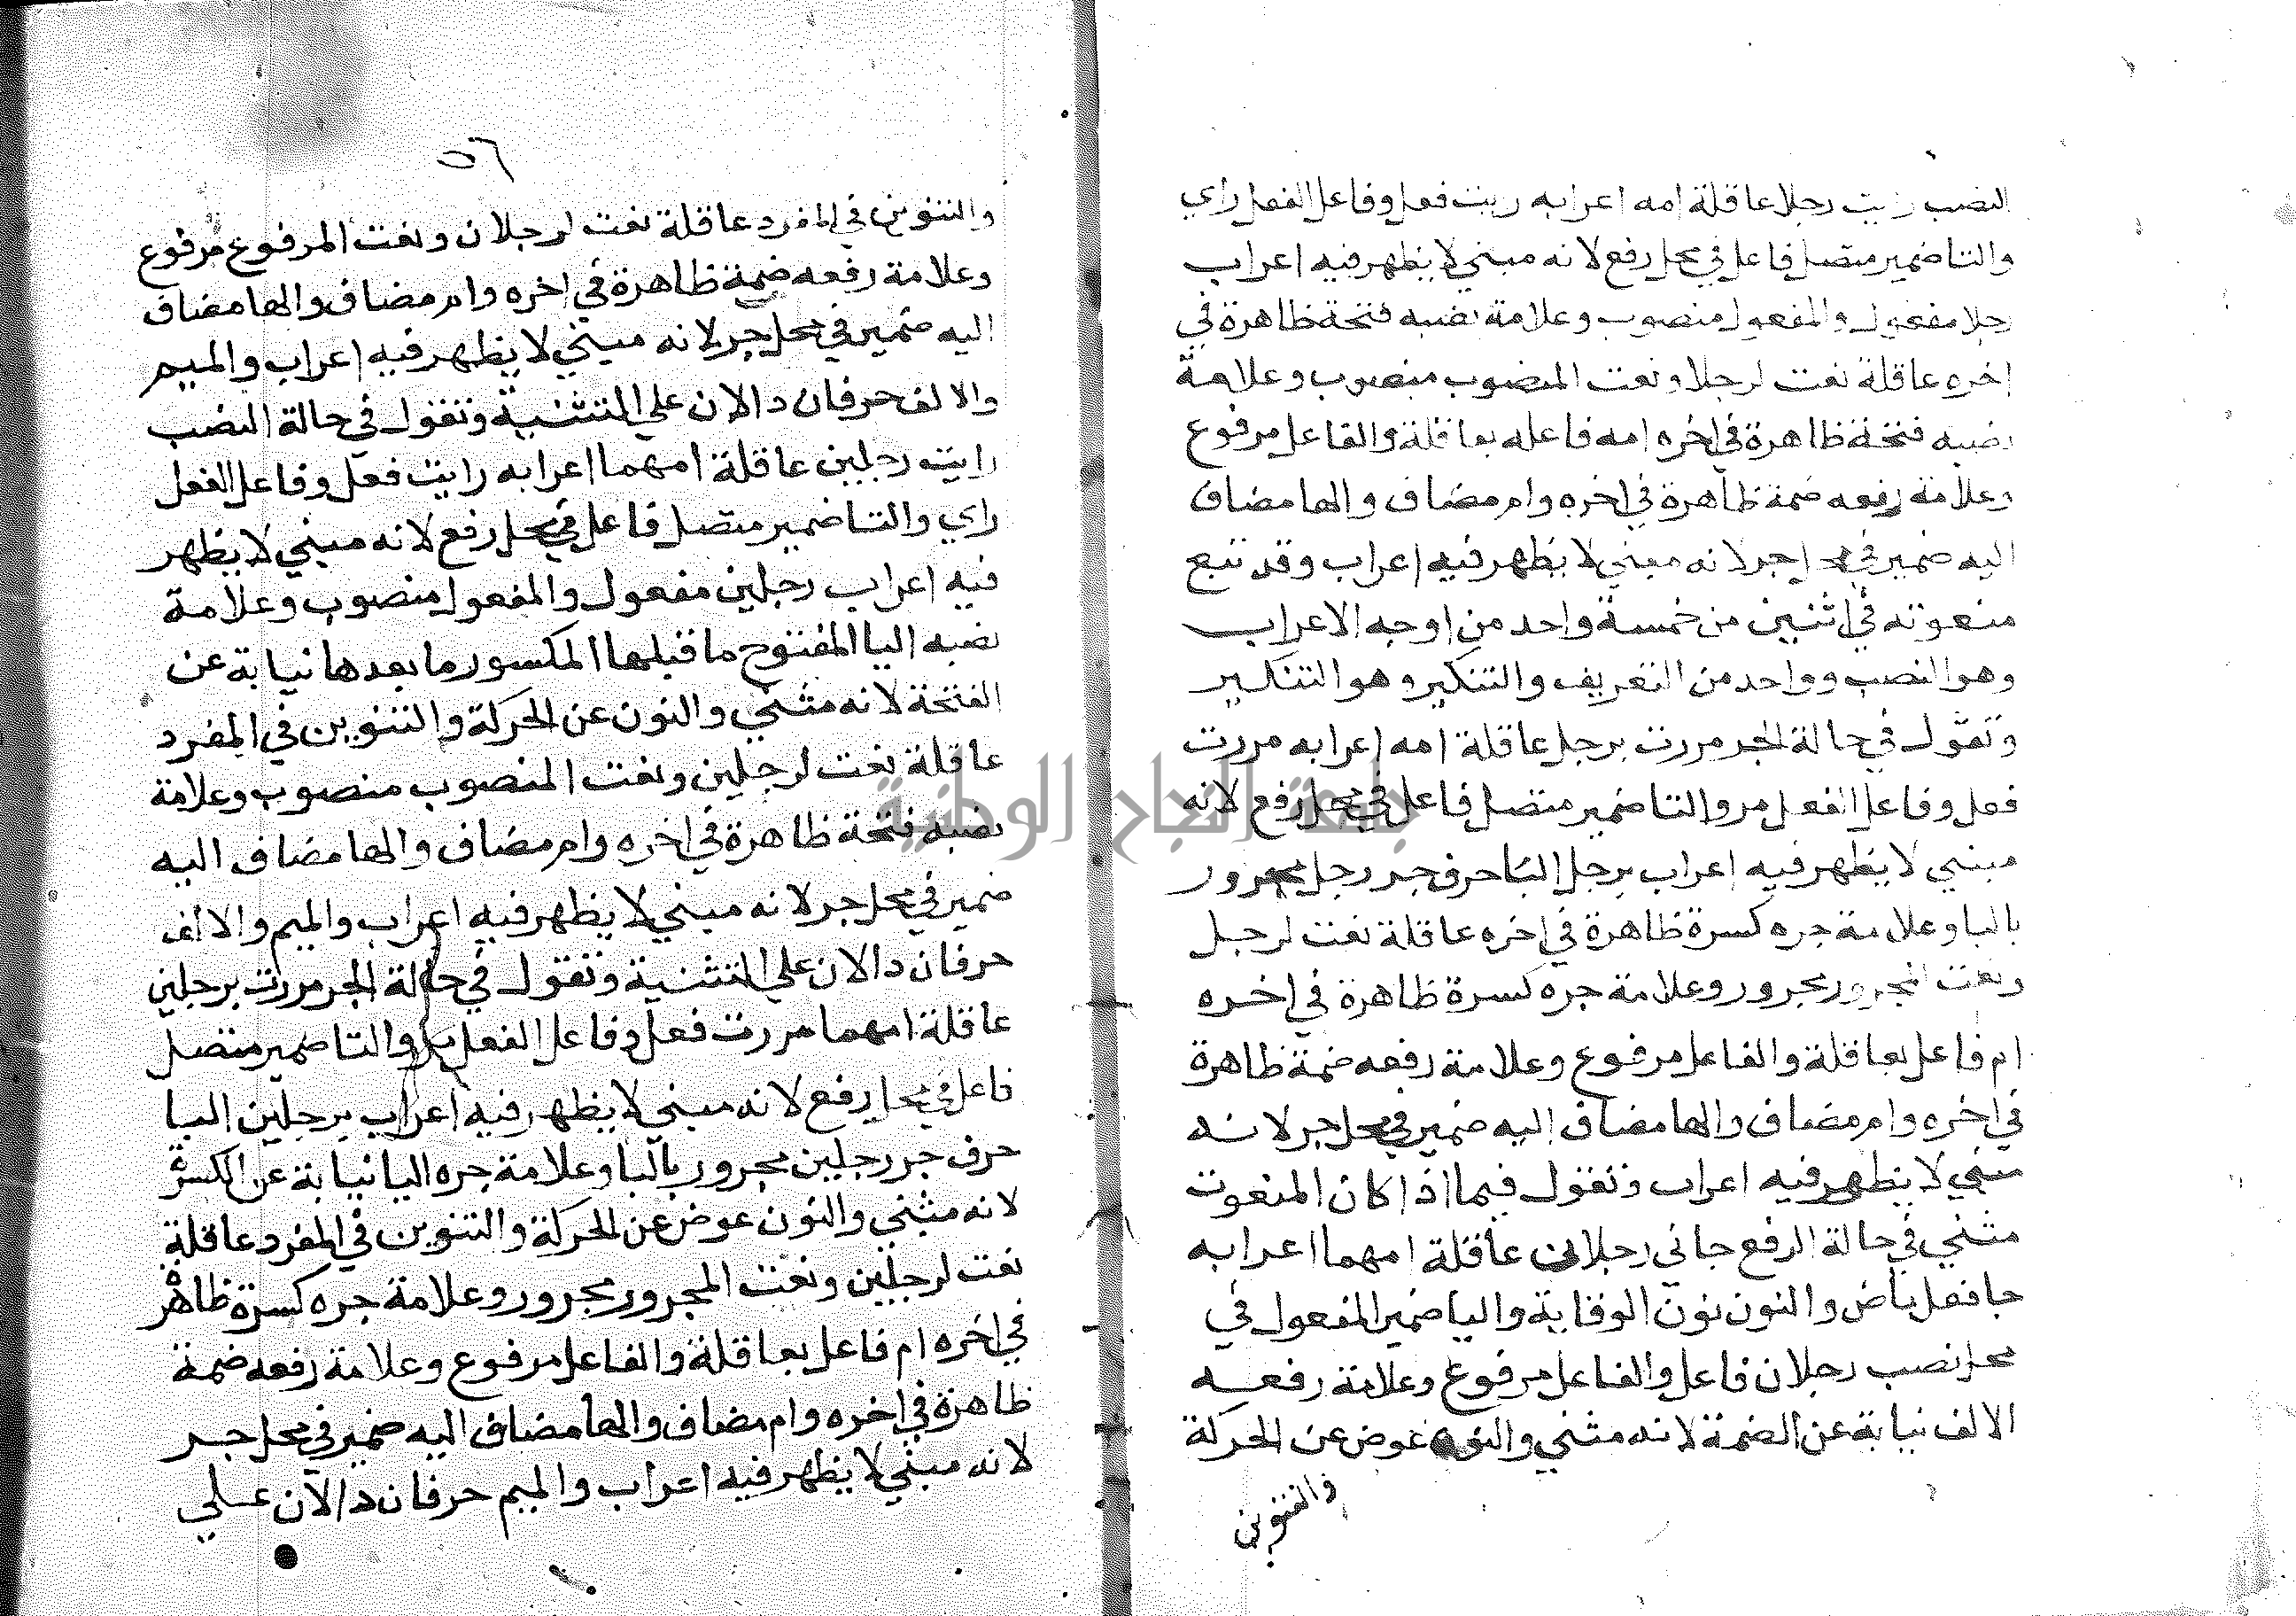 النصب رايت رجلا عاقلة امه اعرابه رايت فعل وفاعل الفعل راي
والتا ضمير متصل فاعل في محل رفع لانه مبني لا يظهر فيه اعراب
رجلا مفعول والمفعول منصوب وعلامة نصبه فتحة ظاهرة في
اخره عاقلة نعت لرجلا ونعت المنصوب منصوب وعلامة
نصبه فتحة ظاهرة في اخره امه فاعله بعاقلة والفاعل مرفوع
وعلامة رفعه ضمة ظاهرة في اخره وام مضاف والها مضاف
اليه ضمير في محل جر لانه مبني لا يظهر فيه اعراب وقد تبع
منعوته في اثنين من خمسة واحد من اوجه الاعراب
وهو النصب وواحد من التعريف والتنكير وهو التنكير
وتقول في حالة الجر مررت برجل عاقلة امه اعرابه مررت
فعل وفاعل الفعل مر والتا ضمير متصل فاعل في محل رفع لانه
مبني لا يظهر فيه اعراب برجل البا حرف جر رجل مجرور
بالبا وعلامة جره كسرة ظاهرة في اخره عاقلة نعت لرجل
ونعت المجرور مجرور وعلامة جره كسرة ظاهرة في اخره
ام فاعل بعاقلة والفاعل مرفوع وعلامة رفعه ضمة ظاهرة
في اخره وام مضاف والها مضاف اليه ضمير في محل جر لانه
مبني لا يظهر فيه اعراب وتقول فيما اذا كان المنعوت
مثني في حالة الرفع جاني رجلان عاقلة امهما اعرابه
جا فعل ماض والنون نون الوقاية واليا ضمير المفعول في
محل نصب رجلان فاعل والفاعل مرفوع وعلامة رفعه
الالف نيابة عن الضمة لانه مثني والنون عوض عن الحركة
والتنوين
٥٦
والتنوين في المفرد عاقلة نعت لرجلان ونعت المرفوع مرفوع
وعلامة رفعه ضمة ظاهرة في اخره وام مضاف والها مضاف
اليه ضمير في محل جر لانه مبني لا يظهر فيه اعراب والميم
والالف حرفان دالان علي التثنية وتقول في حالة النصب
رايت رجلين عاقلة امهما اعرابه رايت فعل وفاعل الفعل
راي والتا ضمير متصل فاعل في محل رفع لانه مبني لا يظهر
فيه اعراب رجلين مفعول والمفعول منصوب وعلامة
نصبه اليا المفتوح ما قبلها المكسور ما بعدها نيابة عن
الفتحة لانه مثني والنون عن الحركة والتنوين في المفرد
عاقلة نعت لرجلين ونعت المنصوب منصوب وعلامة
نصبه فتحة ظاهرة في اخره وام مضاف والها مضاف اليه
ضمير في محل جر لانه مبني لا يظهر فيه اعراب والميم والالف
حرفان دالان علي التثنية وتقول في حالة الجر مررت برجلين
عاقلة امهما مررت فعل وفاعل الفعل مر والتا ضمير متصل
فاعل في محل رفع لانه مبني لا يظهر فيه اعراب برجلين البا
حرف جر رجلين مجرور بالبا وعلامة جره اليا نيابة عن الكسرة
لانه مثني والنون عوض عن الحركة والتنوين في المفرد عاقلة
نعت لرجلين ونعت المجرور مجرور وعلامة جره كسرة ظاهرة
في اخره ام فاعل بعاقلة والفاعل مرفوع وعلامة رفعه ضمة
ظاهرة في اخره وام مضاف والها مضاف اليه ضمير في محل جر
لانه مبني لا يظهر فيه اعراب والميم حرفان دالان علي
جامعة النجاح الوطنية